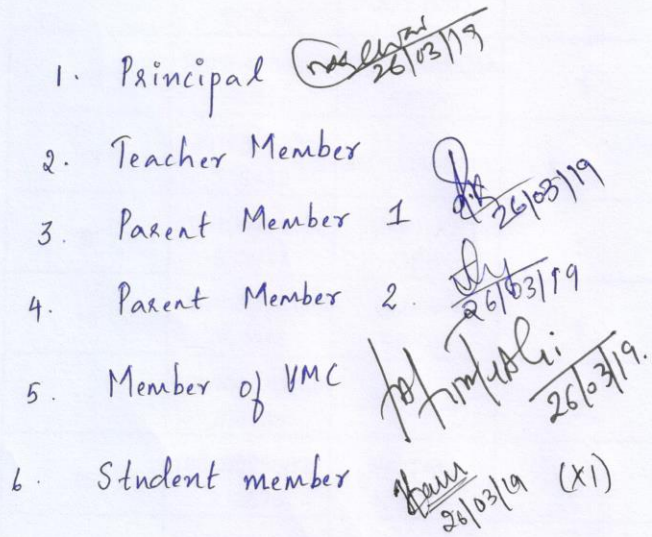 1. Principal 26/03/19
2. Teacher Member
3. Parent Member 1 26/03/19
4. Parent Member 2. 26/03/19
5. Member of VMC 26/03/19.
6. Student member 26/03/19 (XI)